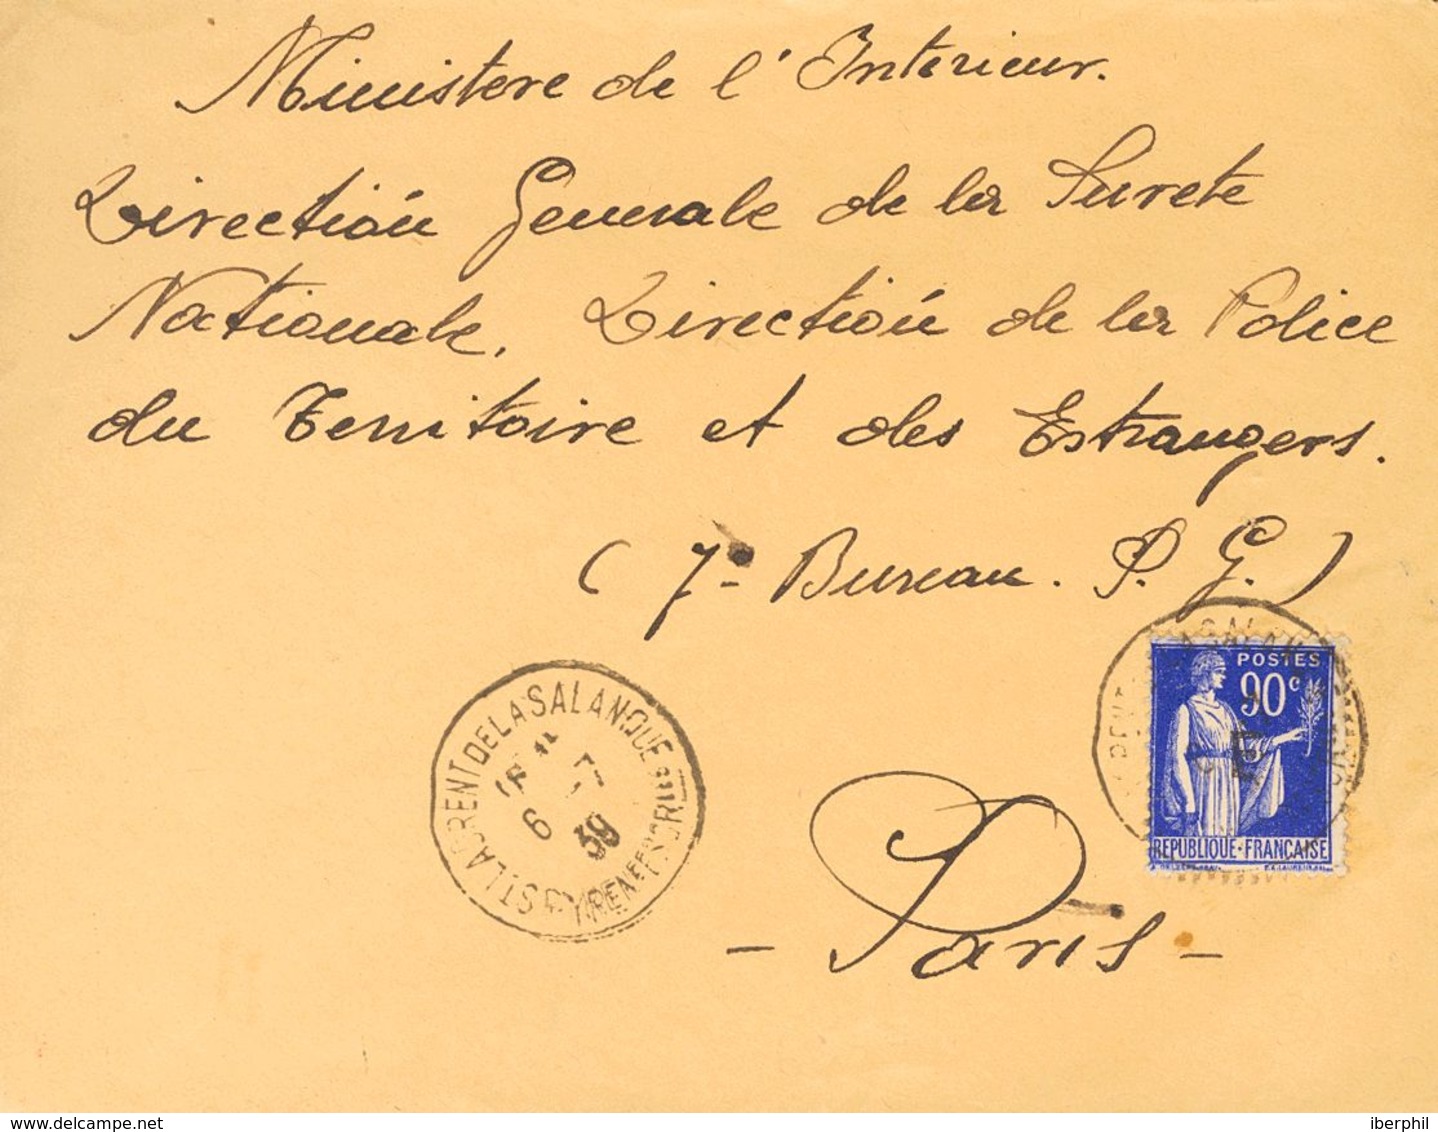 Ministere de l'Interieur.
Direction Generale de la Surete
Nationale, Direction de la Police
du Territoire et des Estrangers.
( 7º Bureau. P. G. )
POSTES
90 c
E
REPUBLIQUE·FRANÇAISE
ST LAURENT DE LA SALANQUE
PYRENEES ORIles
6
39
- Paris -
delcampe.net
iberphil